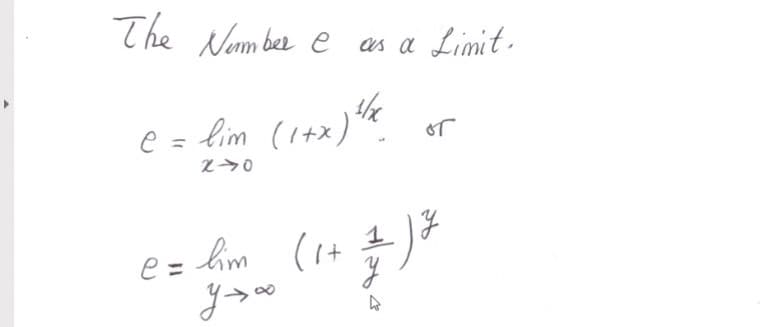 The Number e as a Limit.
e = lim x→0 (1+x)^1/x. or
e = lim y→∞ (1+ 1/y)^y